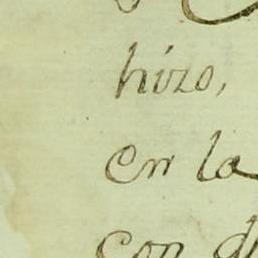 hizo,
en la
con